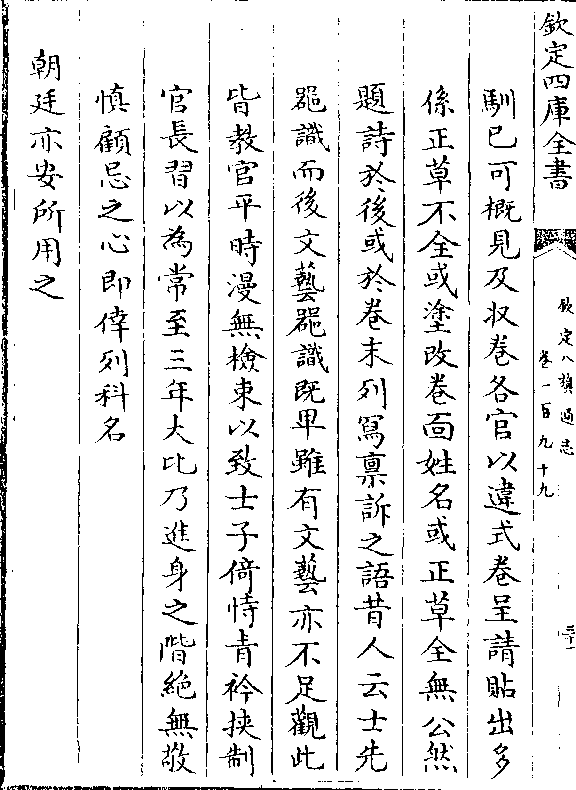 欽定四庫全書
欽定八旗通志
卷一百九十九
三十一
馴已可概見及収卷各官以違式卷呈請貼出多
係正草不全或塗改卷靣姓名或正草全無公然
題詩於後或於卷末列寫禀訴之語昔人云士先
噐識而後文藝噐識既卑雖有文藝亦不足觀此
皆教官平時漫無檢束以致士子倚恃青衿挾制
官長習以為常至三年大比乃進身之階絶無敬
慎顧忌之心即倖列科名
朝廷亦安所用之